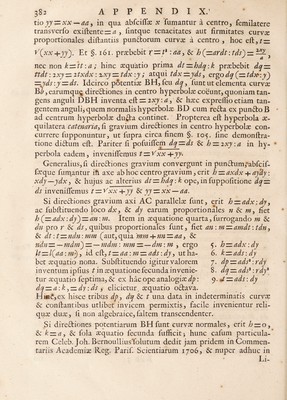 382 APPENDIX.
tio yy=xx—aa, in qua abscissæ x sumantur à centro, semilatere
transverso existente=a, sintque tenacitates aut firmitates curvæ
proportionales distantiis punctorum curvæ à centro, hoc est, t=
√(xx+yy). Et §. 161. præbebit r=s³:aa, & h(=ardt:tds)=
nec non k=it:a; hinc æquatio prima hypothesis præbet dq=
ttdt:xzy=stxdx:xzy=tdx:y; atqui tdx=yds, ergo dq(=tdx:y)
=yds:y=ds. Idcirco potentiæ BH, seu dq, sunt ut elementa curvæ
BD, earumque directiones in centro hyperbolæ coëunt, quoniam tan-
gens anguli DBH inventa est=2xy:aa, & hæc expressio etiam tan-
gentem anguli, quem normalis hyperbolæ BD cum recta ex puncto B
ad centrum hyperbolæ ducta constituit. Propterea est hyperbola æ-
quilatera catenaria, si gravium directiones in centro hyperbolæ con-
currere supponuntur, ut supra circa finem §. 105. sine demonstra-
tione dictum est. Pariter si posuissem dq=ds & h=2xy:aa in hy-
perbola eadem, invenissemus t=√xx+yy.
Generalius, si directiones gravium convergunt in punctum, abscis-
sæque sumantur in axe ab hoc centro gravium, erit h=axdx+aydy:
xdy—ydx, & hujus ac alterius dt=hdq:k ope, in suppositione dq=
ds invenissemus t=√xx+yy & yy=xx—aa.
Si directiones gravium axi AC parallelæ sunt, erit h=adx:dy,
ac substituendo loco dx, & dy earum proportionales n & m, fiet
h(=adx:dy)=an:m. Item in æquatione quarta, surrogando m &
dn pro r & ds, quibus proportionales sunt, fiet an:m=amdt:tdn,
& dt:t=ndn:mm (aut, quia mm+nn=aa, &
ndn=—mdm)=—mdm:mm=—dm:m, ergo
lt=l(aa:m), id est, t=aa:m=ads:dy, ut ha-
bet æquatio nona. Substituendo igitur valorem
inventum ipsius t in æquatione secunda invenie-
tur æquatio septima, & ex hac ope analogiæ dp:
dq=a:k,=ds:ds, elicietur æquatio octava.
5. h=adx:dy
6. k=ads:dy
9. t=ads:dy
Hinc, ex hisce tribus dp, dq & t una data in indeterminatis curvæ
& constantibus utlibet invicem permixtis, facile invenientur reli-
quæ duæ, si non algebraice, saltem transcendenter.
Si directiones potentiarum BH sunt curvæ normales, erit h=0,
& k=a, & sola æquatio secunda sufficit; hunc casum particula-
rem Celeb. Joh. Bernoullius solutum dedit jam pridem in Commen-
tariis Academiæ Reg. Paris. Scientiarum 1706, & nuper adhuc in
Li-